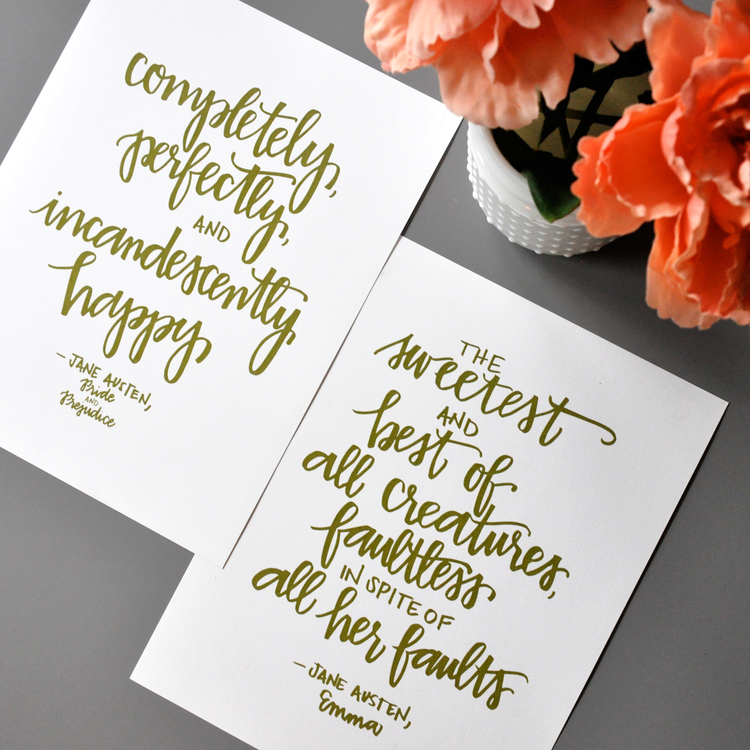 completely,
perfectly,
AND
incandescently
happy
– JANE AUSTEN,
Pride
AND
Prejudice
THE
sweetest
AND
best of
all creatures,
faultless
IN SPITE OF
all her faults
– JANE AUSTEN,
Emma